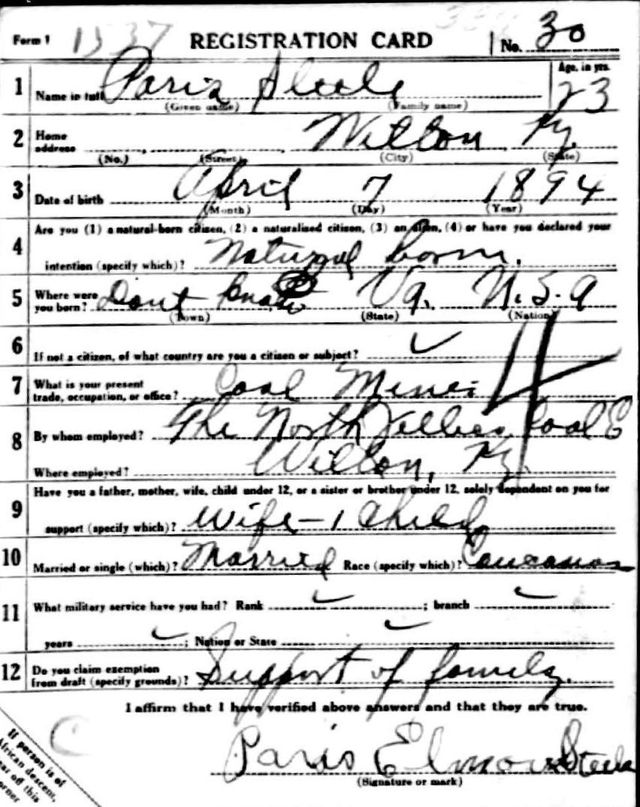 Form 1 1537 REGISTRATION CARD No. 30
1 Name in full Paris Steele Age, in yrs. 23
(Given name) (Family name)
2 Home address Wilton Ky.
(No.) (Street) (City) (State)
3 Date of birth April 7 1894
(Month) (Day) (Year)
4 Are you (1) a natural-born citizen, (2) a naturalized citizen, (3) an alien, (4) or have you declared your
intention (specify which)? Natural born.
5 Where were you born? Dont know Va. U.S.A
(Town) (State) (Nation)
6 If not a citizen, of what country are you a citizen or subject? ✓
7 What is your present trade, occupation, or office? Coal Miner
8 By whom employed? The North Jellico Coal C
Where employed? Wilton, Ky.
9 Have you a father, mother, wife, child under 12, or a sister or brother under 12, solely dependent on you for
support (specify which)? Wife - 1 Child
10 Married or single (which)? Married Race (specify which)? Caucasian
11 What military service have you had? Rank ✓ ; branch ✓
years ✓ ; Nation or State ✓
12 Do you claim exemption from draft (specify grounds)? Support of family.
I affirm that I have verified above answers and that they are true.
Paris Elmon Steele
(Signature or mark)
If person is of
African descent,
tear off this
corner